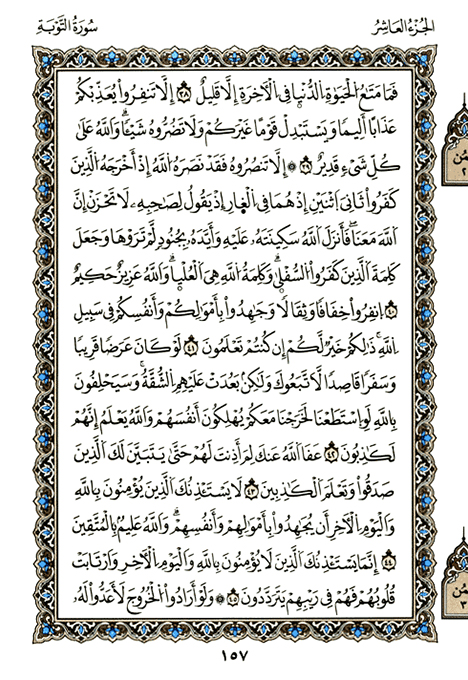 الجُزْءُ العَاشِرُ
سُورَةُ التَّوْبَةِ
فَمَا مَتَٰعُ الْحَيَوٰةِ الدُّنْيَا فِي الْأٓخِرَةِ إِلَّا قَلِيلٌ ٣٨ إِلَّا تَنفِرُواْ يُعَذِّبْكُمْ
عَذَابًا أَلِيمًا وَيَسْتَبْدِلْ قَوْمًا غَيْرَكُمْ وَلَا تَضُرُّوهُ شَيْـًٔا وَاللَّهُ عَلَىٰ
كُلِّ شَيْءٍ قَدِيرٌ ٣٩ ۞ إِلَّا تَنصُرُوهُ فَقَدْ نَصَرَهُ اللَّهُ إِذْ أَخْرَجَهُ الَّذِينَ
كَفَرُواْ ثَانِيَ اَثْنَيْنِ إِذْ هُمَا فِي الْغَارِ إِذْ يَقُولُ لِصَٰحِبِهِۦ لَا تَحْزَنْ إِنَّ
اللَّهَ مَعَنَا فَأَنزَلَ اللَّهُ سَكِينَتَهُۥ عَلَيْهِ وَأَيَّدَهُۥ بِجُنُودٍ لَّمْ تَرَوْهَا وَجَعَلَ
كَلِمَةَ الَّذِينَ كَفَرُواْ السُّفْلَىٰ وَكَلِمَةُ اللَّهِ هِيَ الْعُلْيَا وَاللَّهُ عَزِيزٌ حَكِيمٌ
٤٠ اِنفِرُواْ خِفَافًا وَثِقَالًا وَجَٰهِدُواْ بِأَمْوَٰلِكُمْ وَأَنفُسِكُمْ فِي سَبِيلِ
اِللَّهِ ذَٰلِكُمْ خَيْرٌ لَّكُمْ إِن كُنتُمْ تَعْلَمُونَ ٤١ لَوْ كَانَ عَرَضًا قَرِيبًا
وَسَفَرًا قَاصِدًا لَّاتَّبَعُوكَ وَلَٰكِنۢ بَعُدَتْ عَلَيْهِمُ الشُّقَّةُ وَسَيَحْلِفُونَ
بِاللَّهِ لَوِ اِسْتَطَعْنَا لَخَرَجْنَا مَعَكُمْ يُهْلِكُونَ أَنفُسَهُمْ وَاللَّهُ يَعْلَمُ إِنَّهُمْ
لَكَٰذِبُونَ ٤٢ عَفَا اَللَّهُ عَنكَ لِمَ أَذِنتَ لَهُمْ حَتَّىٰ يَتَبَيَّنَ لَكَ الَّذِينَ
صَدَقُواْ وَتَعْلَمَ الْكَٰذِبِينَ ٤٣ لَا يَسْتَـْٔذِنُكَ الَّذِينَ يُؤْمِنُونَ بِاللَّهِ
وَالْيَوْمِ الْأٓخِرِ أَن يُجَٰهِدُواْ بِأَمْوَٰلِهِمْ وَأَنفُسِهِمْ وَاللَّهُ عَلِيمٌۢ بِالْمُتَّقِينَ
٤٤ إِنَّمَا يَسْتَـْٔذِنُكَ الَّذِينَ لَا يُؤْمِنُونَ بِاللَّهِ وَالْيَوْمِ الْأٓخِرِ وَارْتَابَتْ
قُلُوبُهُمْ فَهُمْ فِي رَيْبِهِمْ يَتَرَدَّدُونَ ٤٥ ۞ وَلَوْ أَرَادُواْ الْخُرُوجَ لَأَعَدُّواْ لَهُۥ
١٥٧